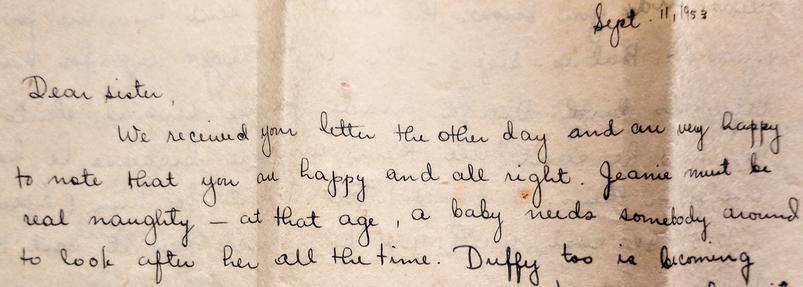 Sept. 11, 1953
Dear sister,
We received your letter the other day and are very happy
to note that you are happy and all right. Jeanie must be
real naughty – at that age, a baby needs somebody around
to look after her all the time. Duffy too is becoming